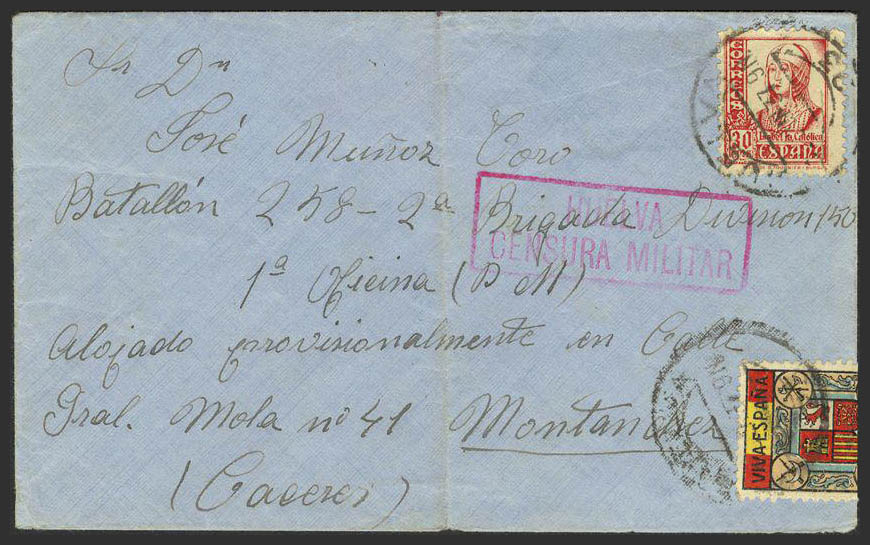 Sr Dn
José Muñoz Toro
Batallón 258-2ª Brigada Division 150
1ª Oficina (P M)
Alojado provisionalmente en Calle
Gral. Mola nº 41 Montanchez
(Caceres)
HUELVA
CENSURA MILITAR
CORREOS
30 Cts
Isabel la Católica
ESPAÑA
VIVA ESPAÑA